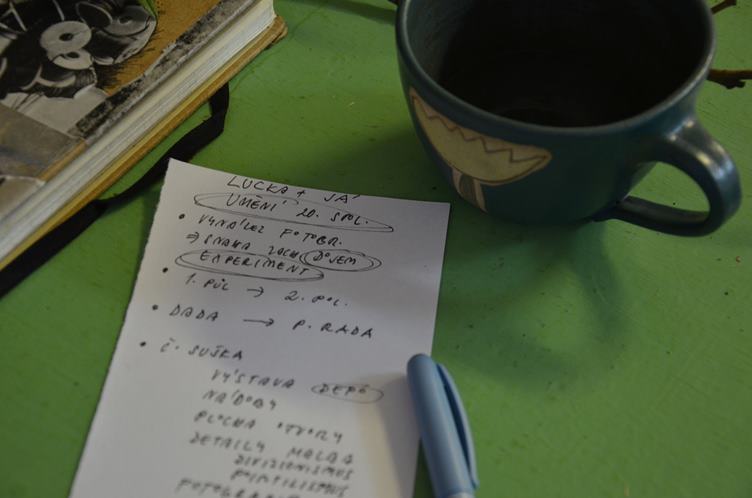 LUCKA + JÁ
UMĚNÍ 20. STOL.
• VYNÁLEZ FOTOGR.
⇒ SNAHA ZACH. DOJEM
EXPERIMENT
• 1. PŮL → 2. POL.
• DADA → P. RADA
• Č. SUŠKA
VÝSTAVA DEPO
NÁDOBY
PLOCHA OTVORY
DETAILY MALBA
DIVIZIONISMUS
POINTILISMUS